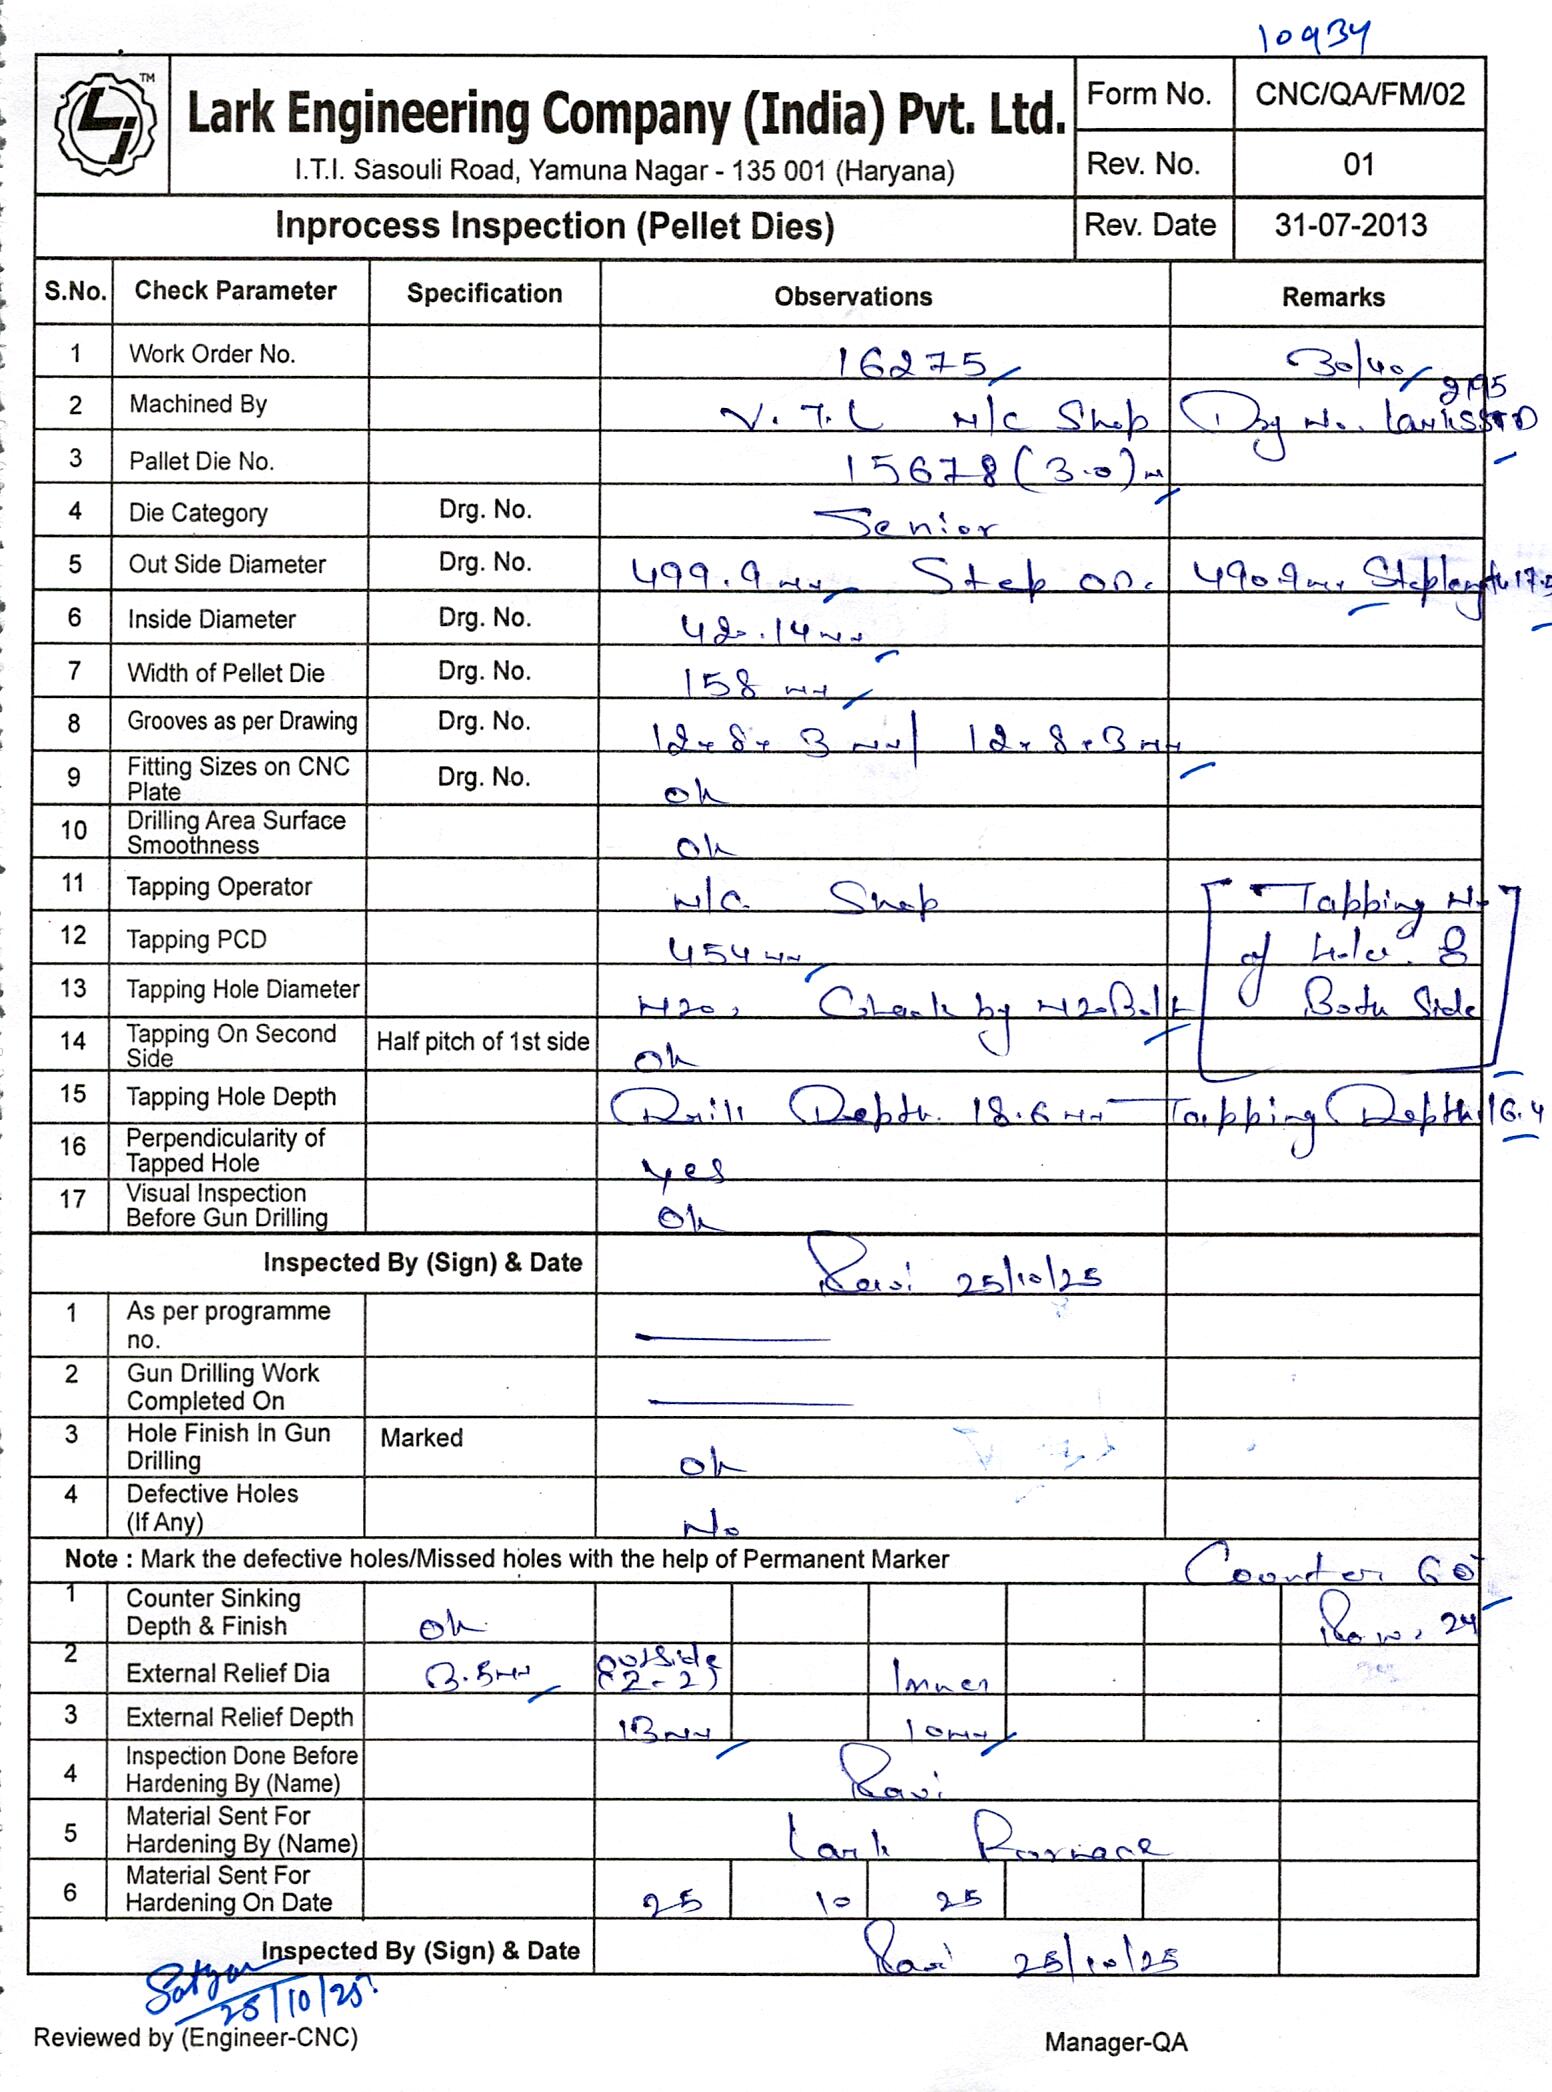 10934
TM
Lark Engineering Company (India) Pvt. Ltd.
I.T.I. Sasouli Road, Yamuna Nagar - 135 001 (Haryana)
Form No. CNC/QA/FM/02
Rev. No. 01
Inprocess Inspection (Pellet Dies) Rev. Date 31-07-2013
S.No. Check Parameter Specification Observations Remarks
1 Work Order No. 16275 30/40
2 Machined By V.T.L M/C Shop Drg No. 2195
3 Pallet Die No. 15678 (3.0) m
4 Die Category Drg. No. Senior
5 Out Side Diameter Drg. No. 499.9mm Step OD. 490.9mm Step length 17.5
6 Inside Diameter Drg. No. 420.14mm
7 Width of Pellet Die Drg. No. 158 mm
8 Grooves as per Drawing Drg. No. 12x8x3 mm/ 12x8x3mm
9 Fitting Sizes on CNC Plate Drg. No. ok
10 Drilling Area Surface Smoothness ok
11 Tapping Operator M/C Shop Tapping No
12 Tapping PCD 454mm of Holes. 8
13 Tapping Hole Diameter M20, Check by M20 Bolt Both Side
14 Tapping On Second Side Half pitch of 1st side ok
15 Tapping Hole Depth Drill Depth 18.6mm Tapping Depth 16.4
16 Perpendicularity of Tapped Hole yes
17 Visual Inspection Before Gun Drilling ok
Inspected By (Sign) & Date Ravi 25/10/25
1 As per programme no.
2 Gun Drilling Work Completed On
3 Hole Finish In Gun Drilling Marked ok
4 Defective Holes (If Any) No
Note : Mark the defective holes/Missed holes with the help of Permanent Marker Counter 60°
1 Counter Sinking Depth & Finish ok Row. 24
2 External Relief Dia 3.5mm outside (2-2) Inner
3 External Relief Depth 13mm 10mm
4 Inspection Done Before Hardening By (Name) Ravi
5 Material Sent For Hardening By (Name) Lark Furnace
6 Material Sent For Hardening On Date 25 10 25
Inspected By (Sign) & Date Ravi 25/10/25
25/10/25
Reviewed by (Engineer-CNC) Manager-QA